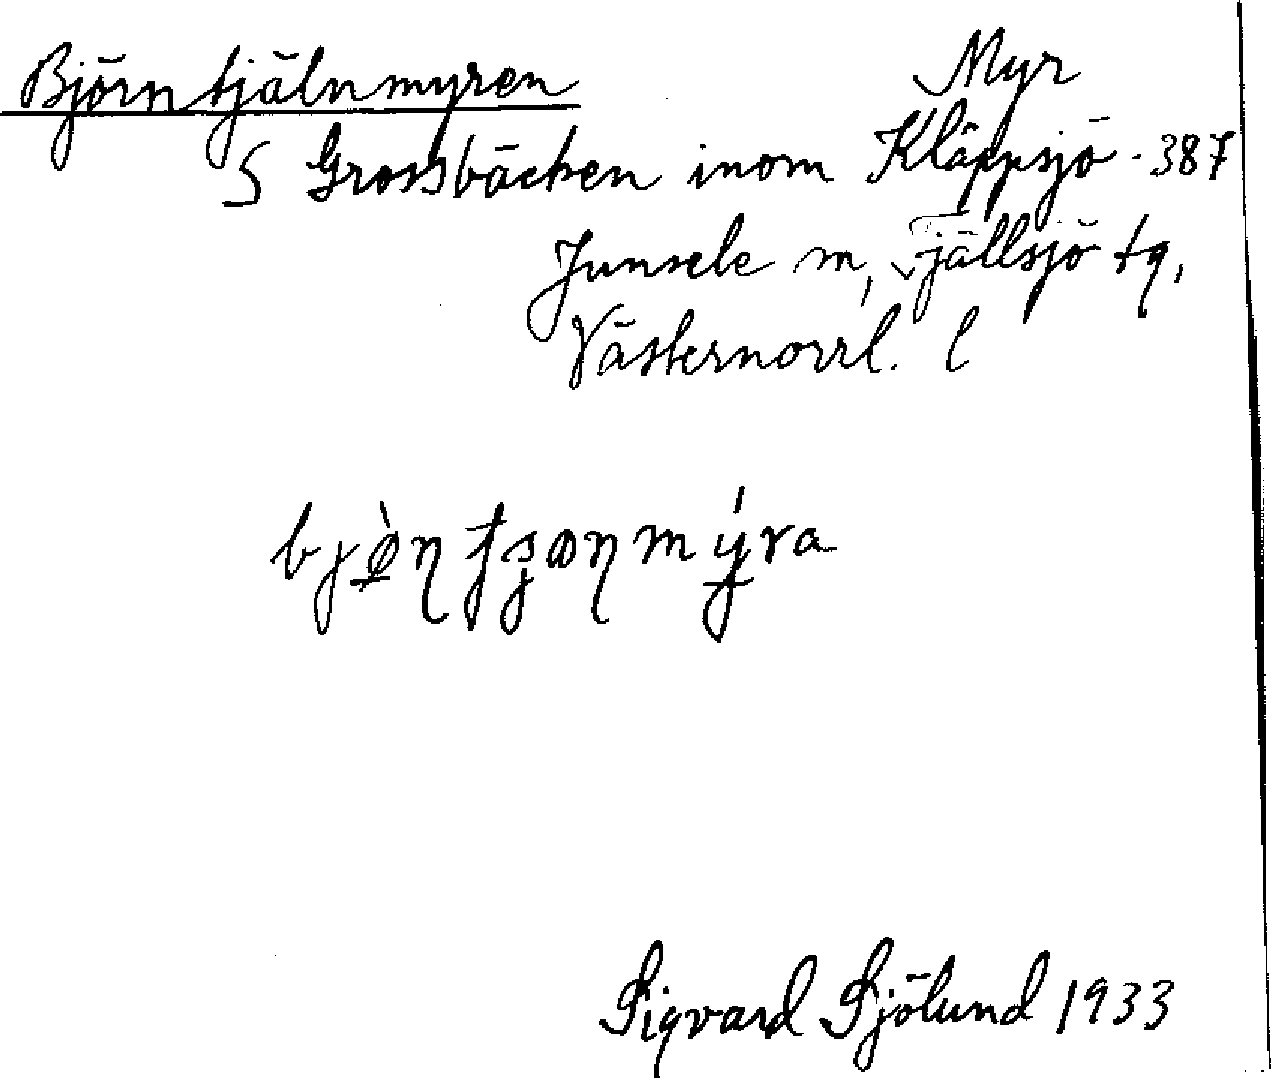 Björntjälnmyren Myr
S Grossbäcken inom Kläppsjö - 387
Junsele m, Fjällsjö tg,
Västernorrl. l
Sigvard Sjölund 1933